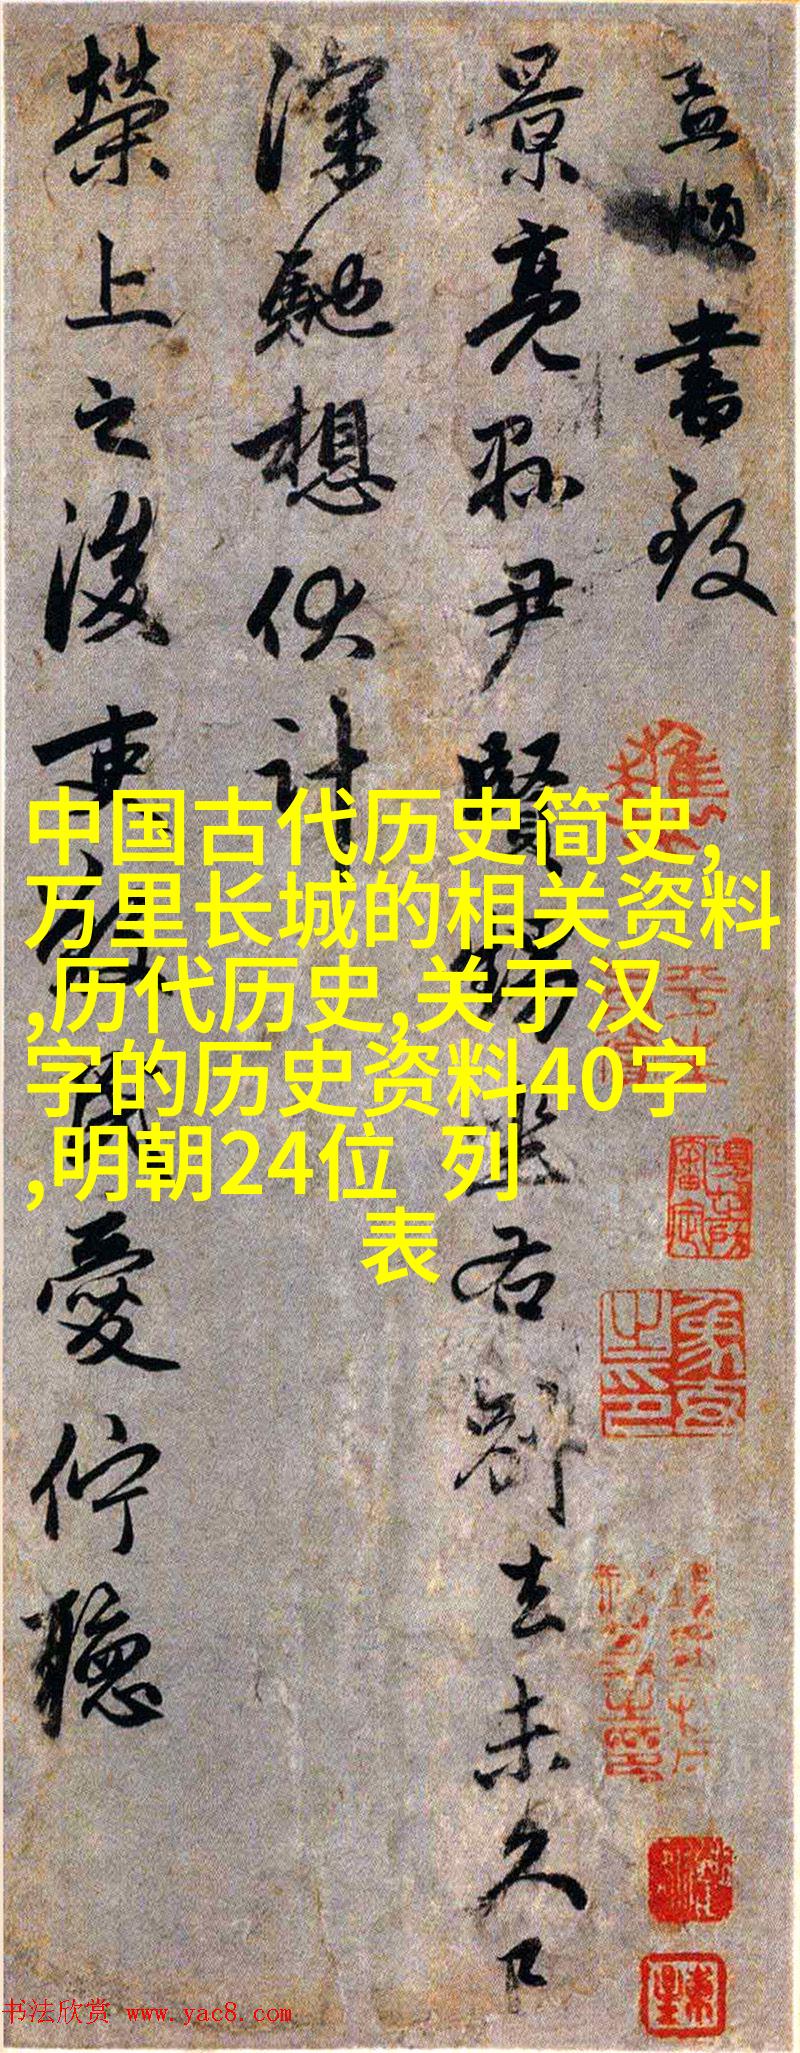 孟頫書致
景亮縣尹賢右別去未久
深馳想伏計
榮上之後吏愛佇聽
中国古代历史简史,
万里长城的相关资料
,历代历史,关于汉
字的历史资料40字
,明朝24位 列
表
书法欣赏 www.yac8.com